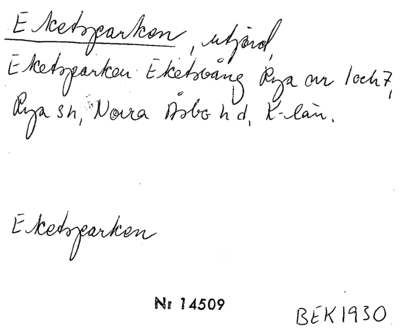 Eketsparken, utjord,
Eketsparken Eketsvång Rya nr 1 och 7,
Rya sn, Norra Åsbo hd, K-län.
Eketsparken
Nr 14509
BEK 1930